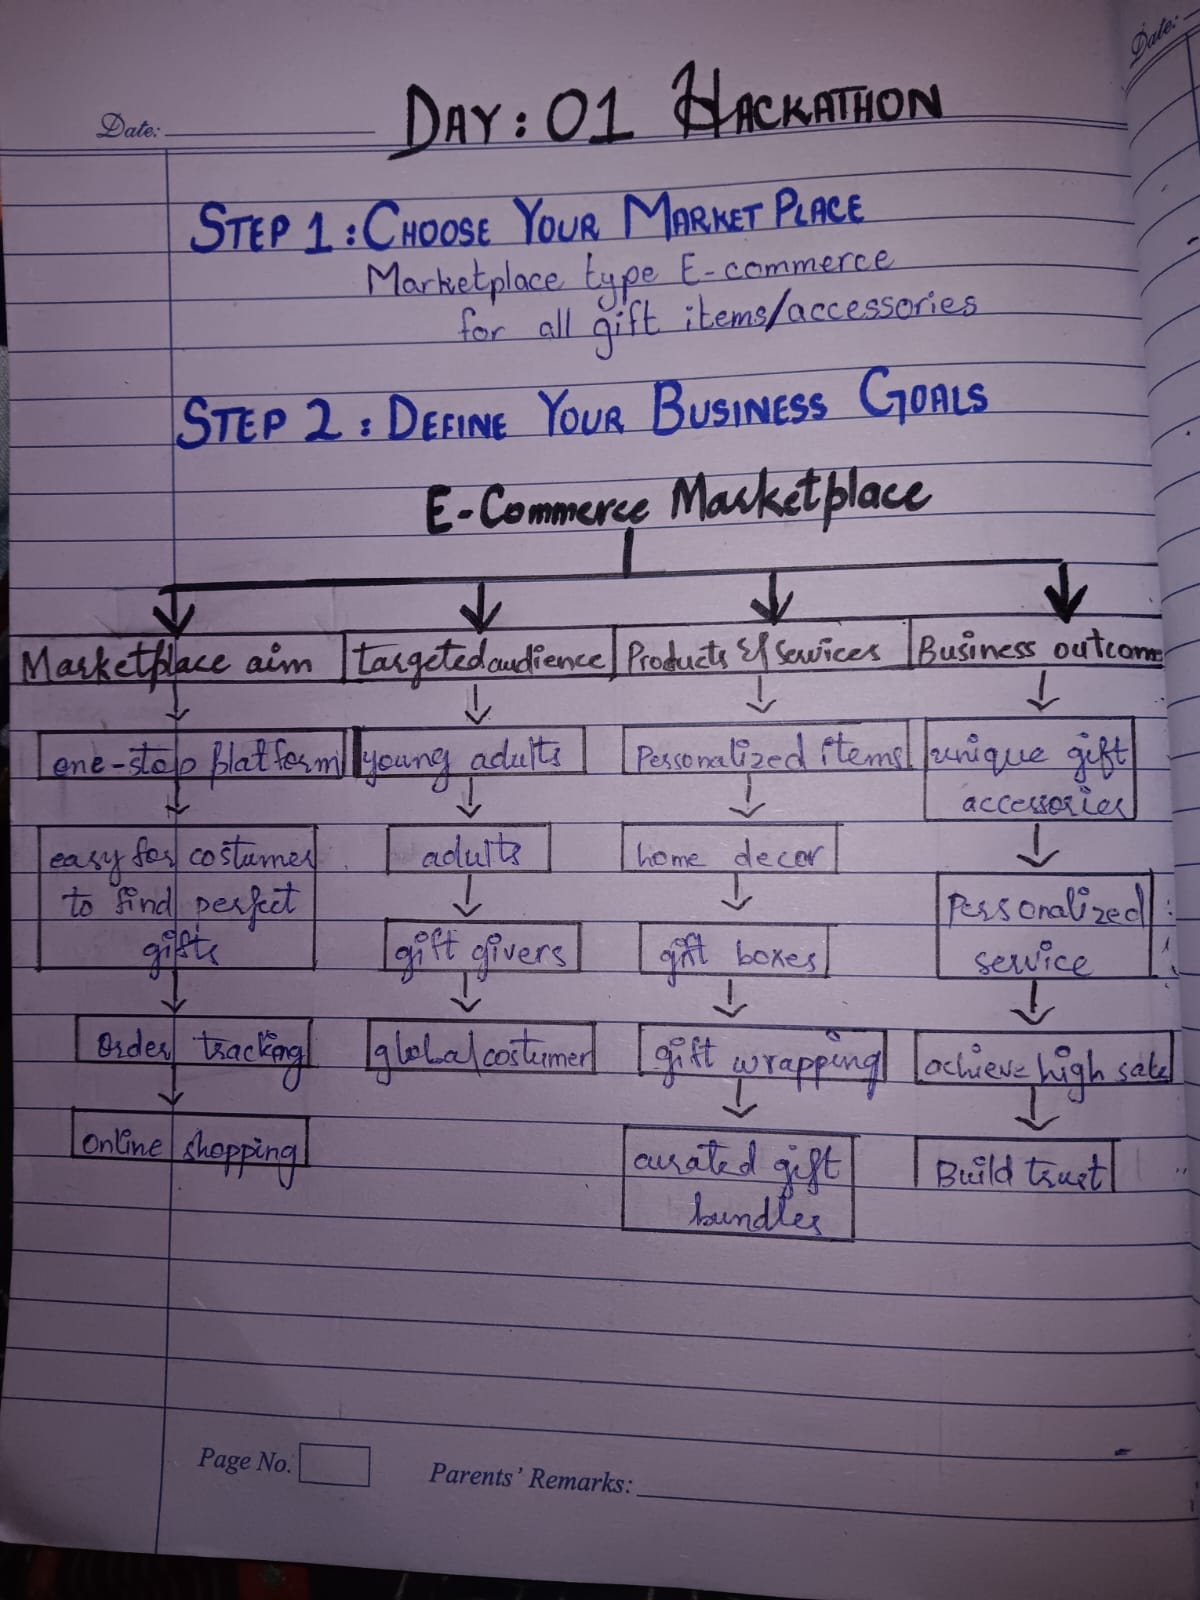 Date:
DAY: 01 HACKATHON
Date:
STEP 1: CHOOSE YOUR MARKET PLACE
Marketplace type E-commerce
for all gift items/accessories
STEP 2: DEFINE YOUR BUSINESS GOALS
E-Commerce Marketplace
Marketplace aim
one-stop platform
easy for costumer
to find perfect
gifts
Order tracking
Online shopping
targeted audience
young adults
adults
gift givers
global costumer
Products & Services
Personalized items
home decor
gift boxes
gift wrapping
curated gift
bundles
Business outcome
unique gift
accessories
Personalized
service
achieve high sale
Build trust
Page No.
Parents' Remarks: